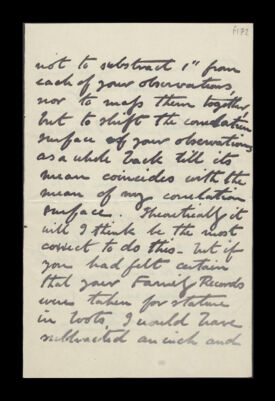 f172
not to substract 1" from
each of your observations,
nor to mass them together,
but to shift the correlation
surface of your observations
as a whole back till its
mean coincides with the
mean of my correlation
surface. Theoretically it
will I think be the most
correct to do this – but if
you had felt certain
that your Family Records
were taken for stature
in boots, I would have
subtracted an inch and